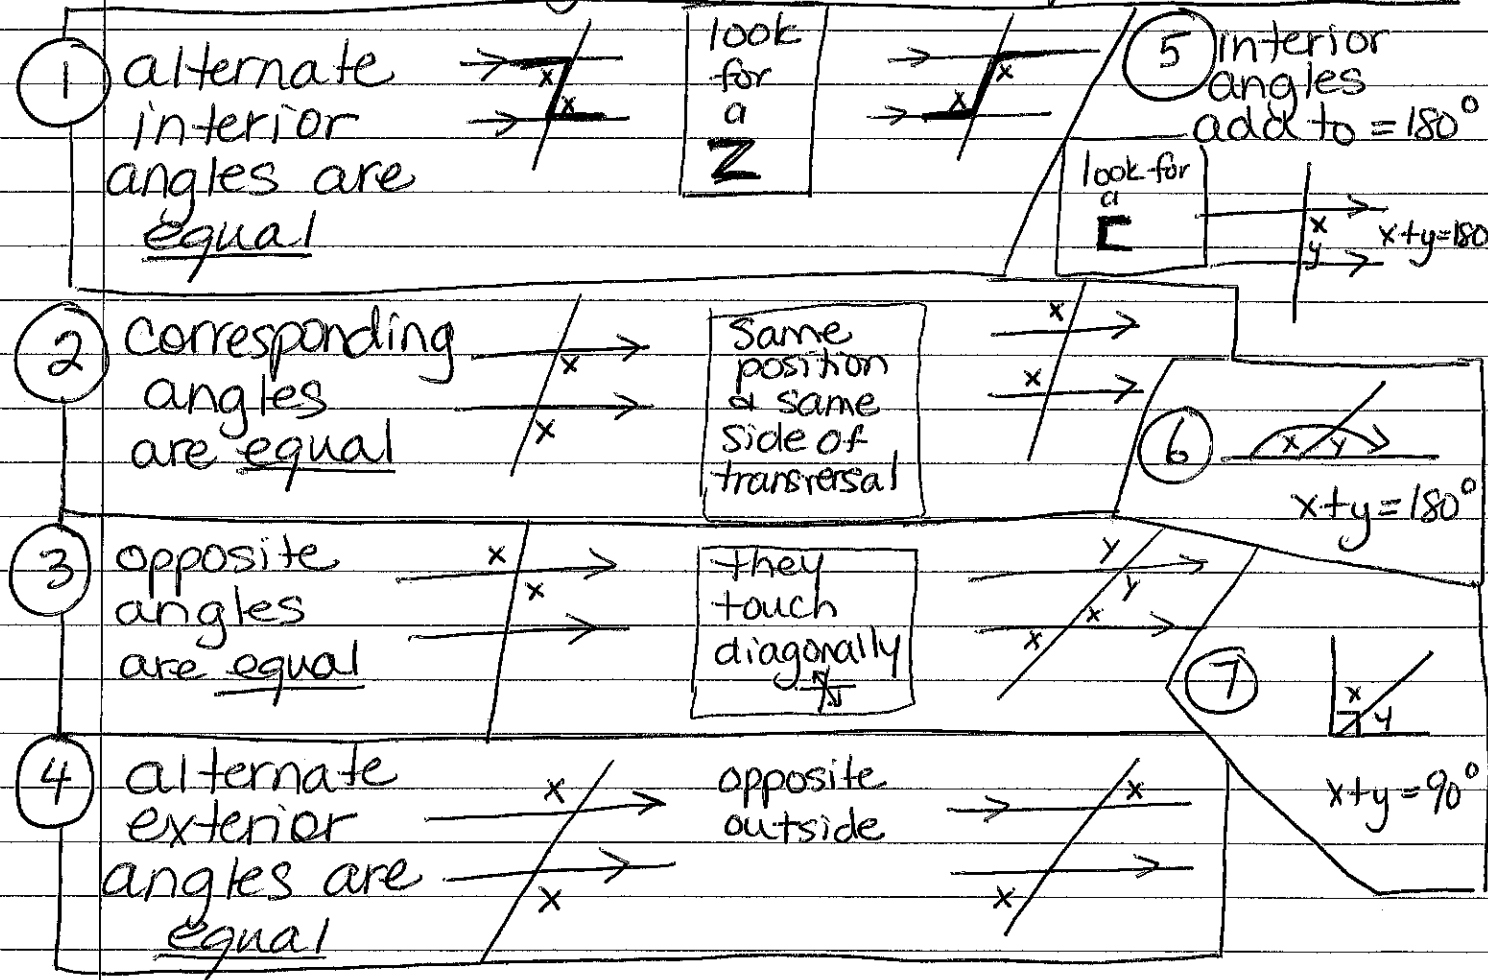 1
alternate
interior
angles are
equal
x
x
look
for
a
Z
x
x
5
interior
angles
add to = 180°
look for
a
C
x
y
x+y=180
2
corresponding
angles
are equal
x
x
Same
position
& same
side of
transversal
x
x
6
x y
x+y=180°
3
opposite
angles
are equal
x
x
they
touch
diagonally
y
y
x
x
7
x
y
x+y=90°
4
alternate
exterior
angles are
equal
x
x
opposite
outside
x
x